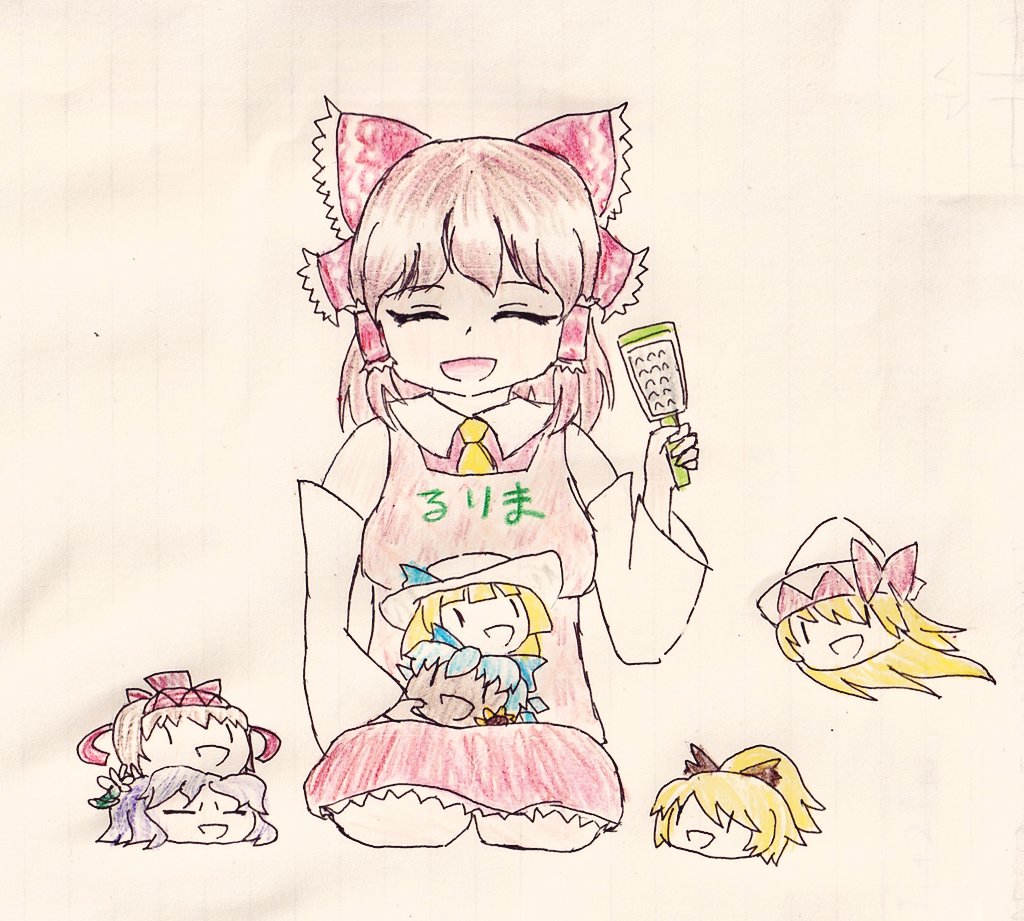 るりま